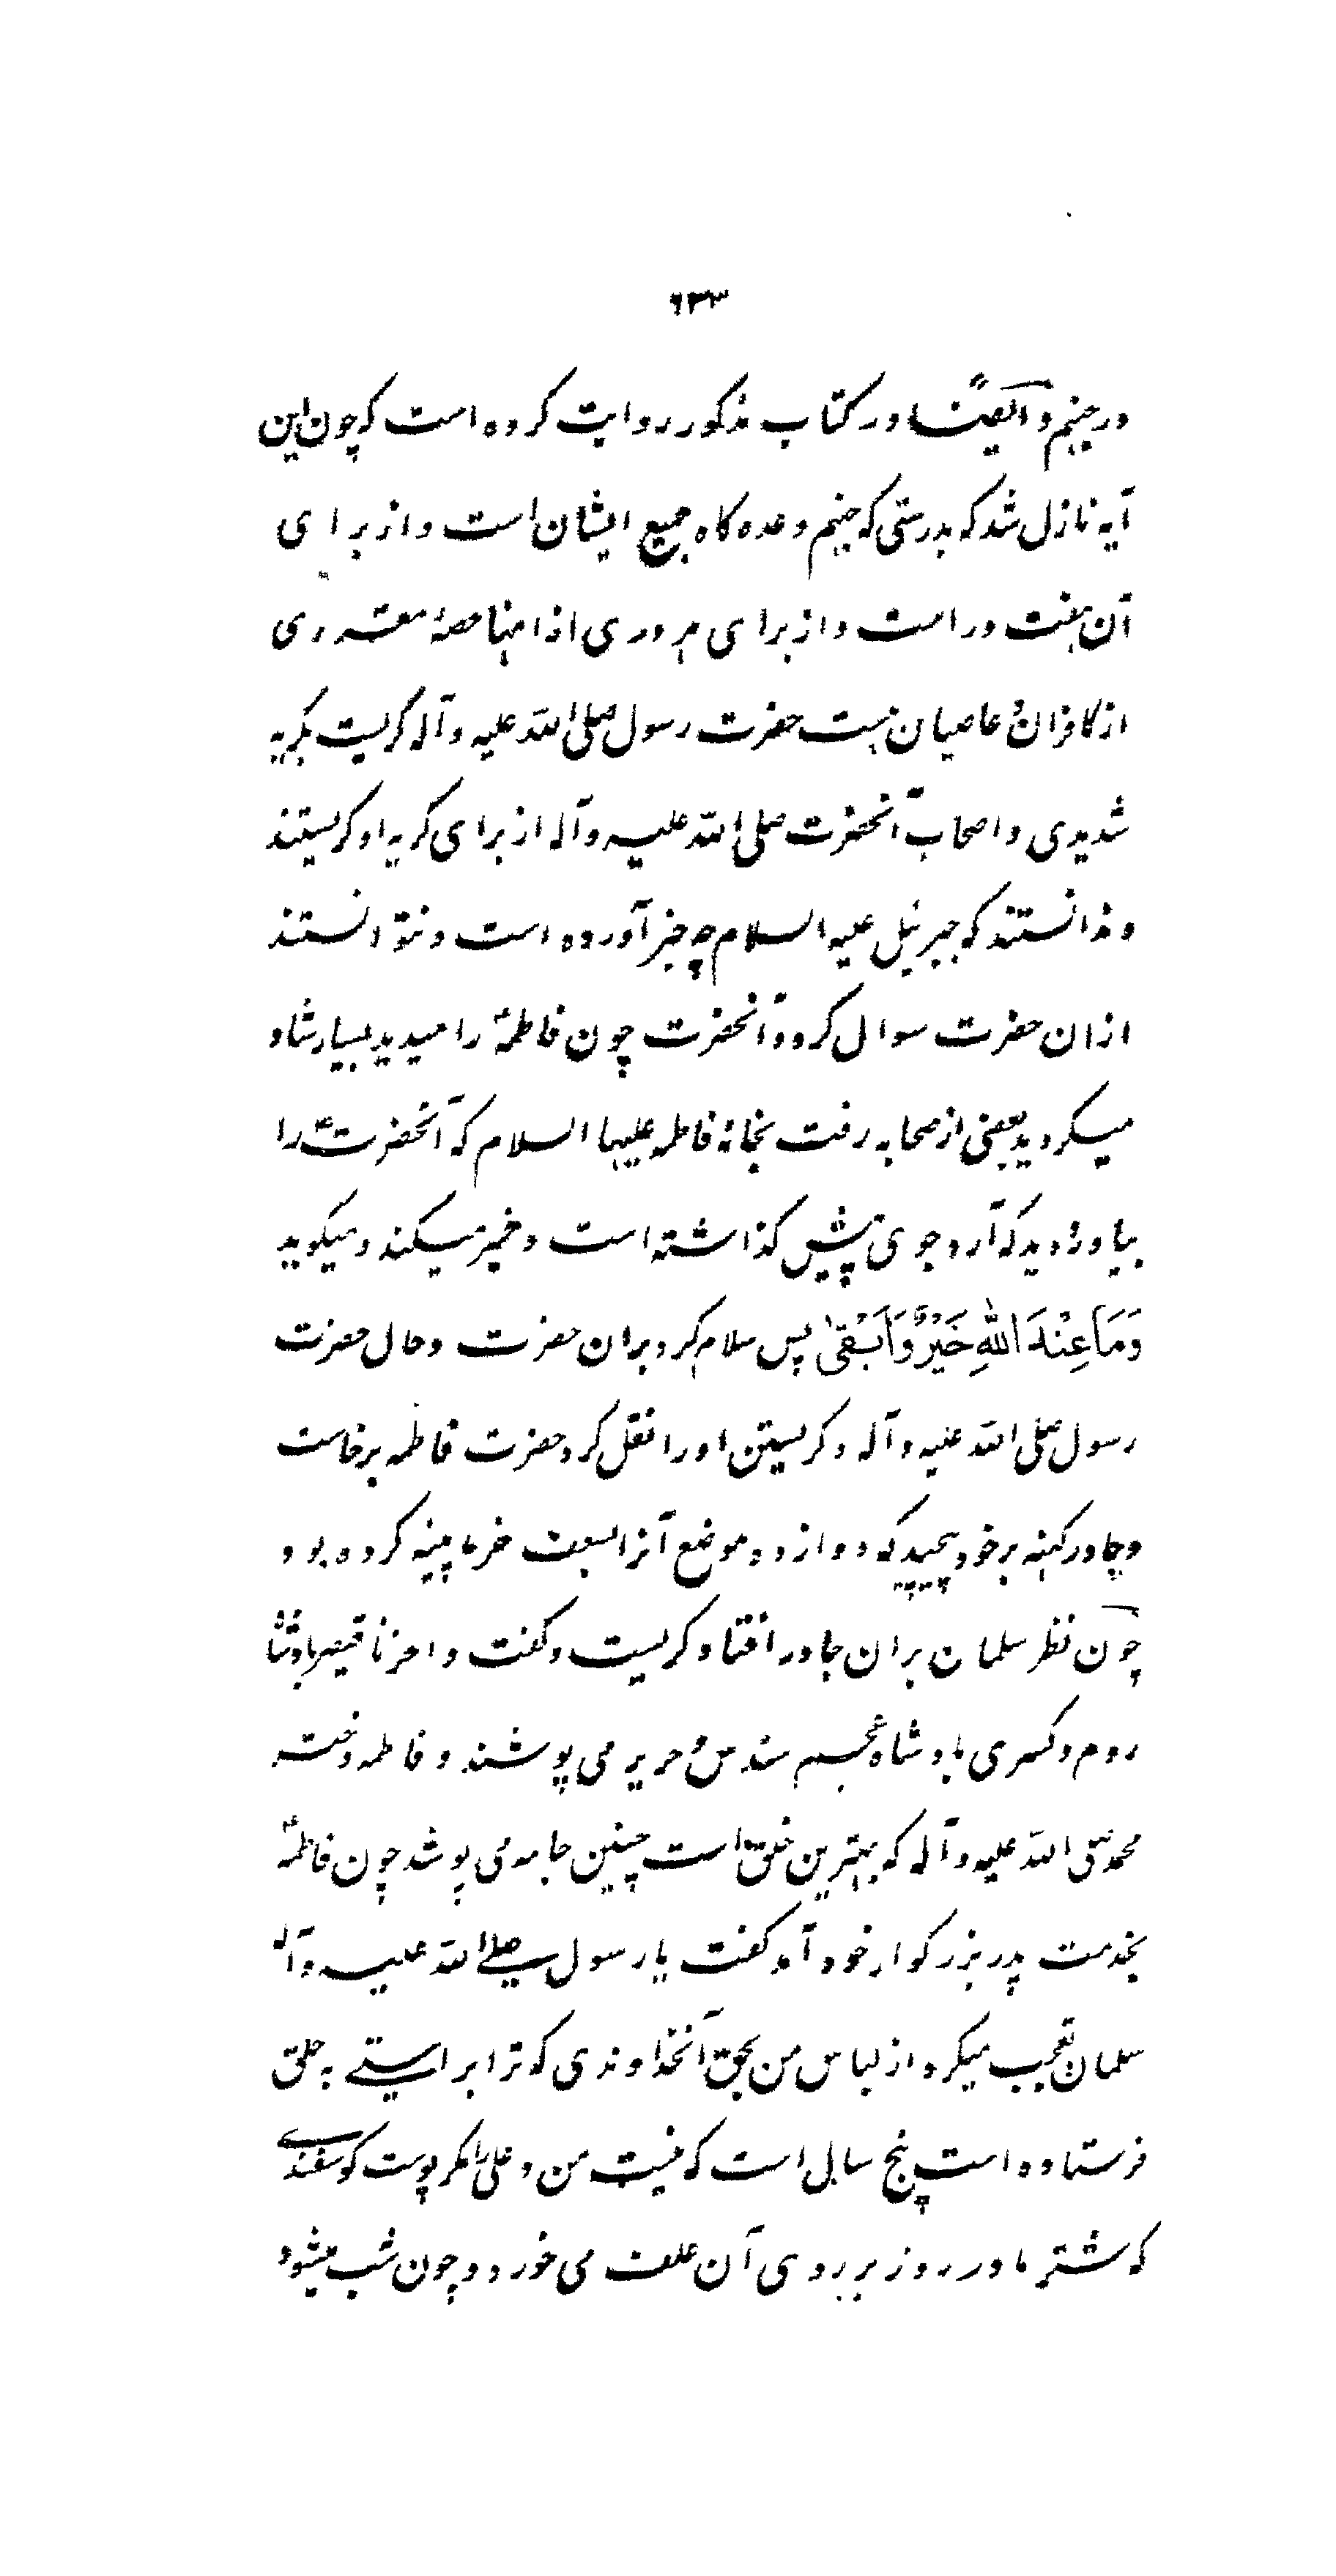 ۶۳۳
در جهنم و ایضًا در کتاب مذکور روایت کرده است که چون این
آیه نازل شد که بدرستی که جهنم وعده کاه جمیع ایشان است و از برای
آن هفت در است و از برای هر دری از اینها حصهٔ مقدری
از کافران و عاصیان هست حضرت رسول صلی الله علیه و آله کریست بکریه
شدیدی و اصحاب آنحضرت صلی الله علیه و آله از برای کریه او کریستند
و ندانستند که جبرئیل علیه السلام چه چیز آورده است و نتوانستند
ازان حضرت سوال کرد و آنحضرت چون فاطمهؑ را میدید بسیار شاد
میکردید بعضی از صحابه رفت بخانهٔ فاطمه علیها السلام که آنحضرتؑ را
بیاورد دید که آرد جوی در پیش کذاشته است و خمیر میکند و میکوید
وَمَا عِنْدَ اللهِ خَيْرٌ وَّاَبْقىٰ پس سلام کرد بران حضرت و حال حضرت
رسول صلی الله علیه و آله و کریستن او را نقل کرد حضرت فاطمه برخاست
و چادر کهنه بر خود پیچید که دوازده موضع آنرا بسعف خرما پینه کرده بود
چون نظر سلمان بران چادر افتاد کریست و کفت واحزنا قیصر پادشاه
روم و کسری پادشاه عجم سندس و حریر می پوشند و فاطمه دختر
محمد صلی الله علیه و آله که بهترین خلق است چنین جامه می پوشد چون فاطمهؑ
بخدمت پدر بزرکوار خود آمد کفت یا رسول صلے الله علیه و آله
سلمان تعجب میکرد از لباس من بحق آنخداوندی که ترا براستے به خلق
فرستاده است پنج سال است که نیست من و علی را مکر پوست کوسفندے
که شتر ما در روز بر روی آن علف می خورد و چون شب میشود